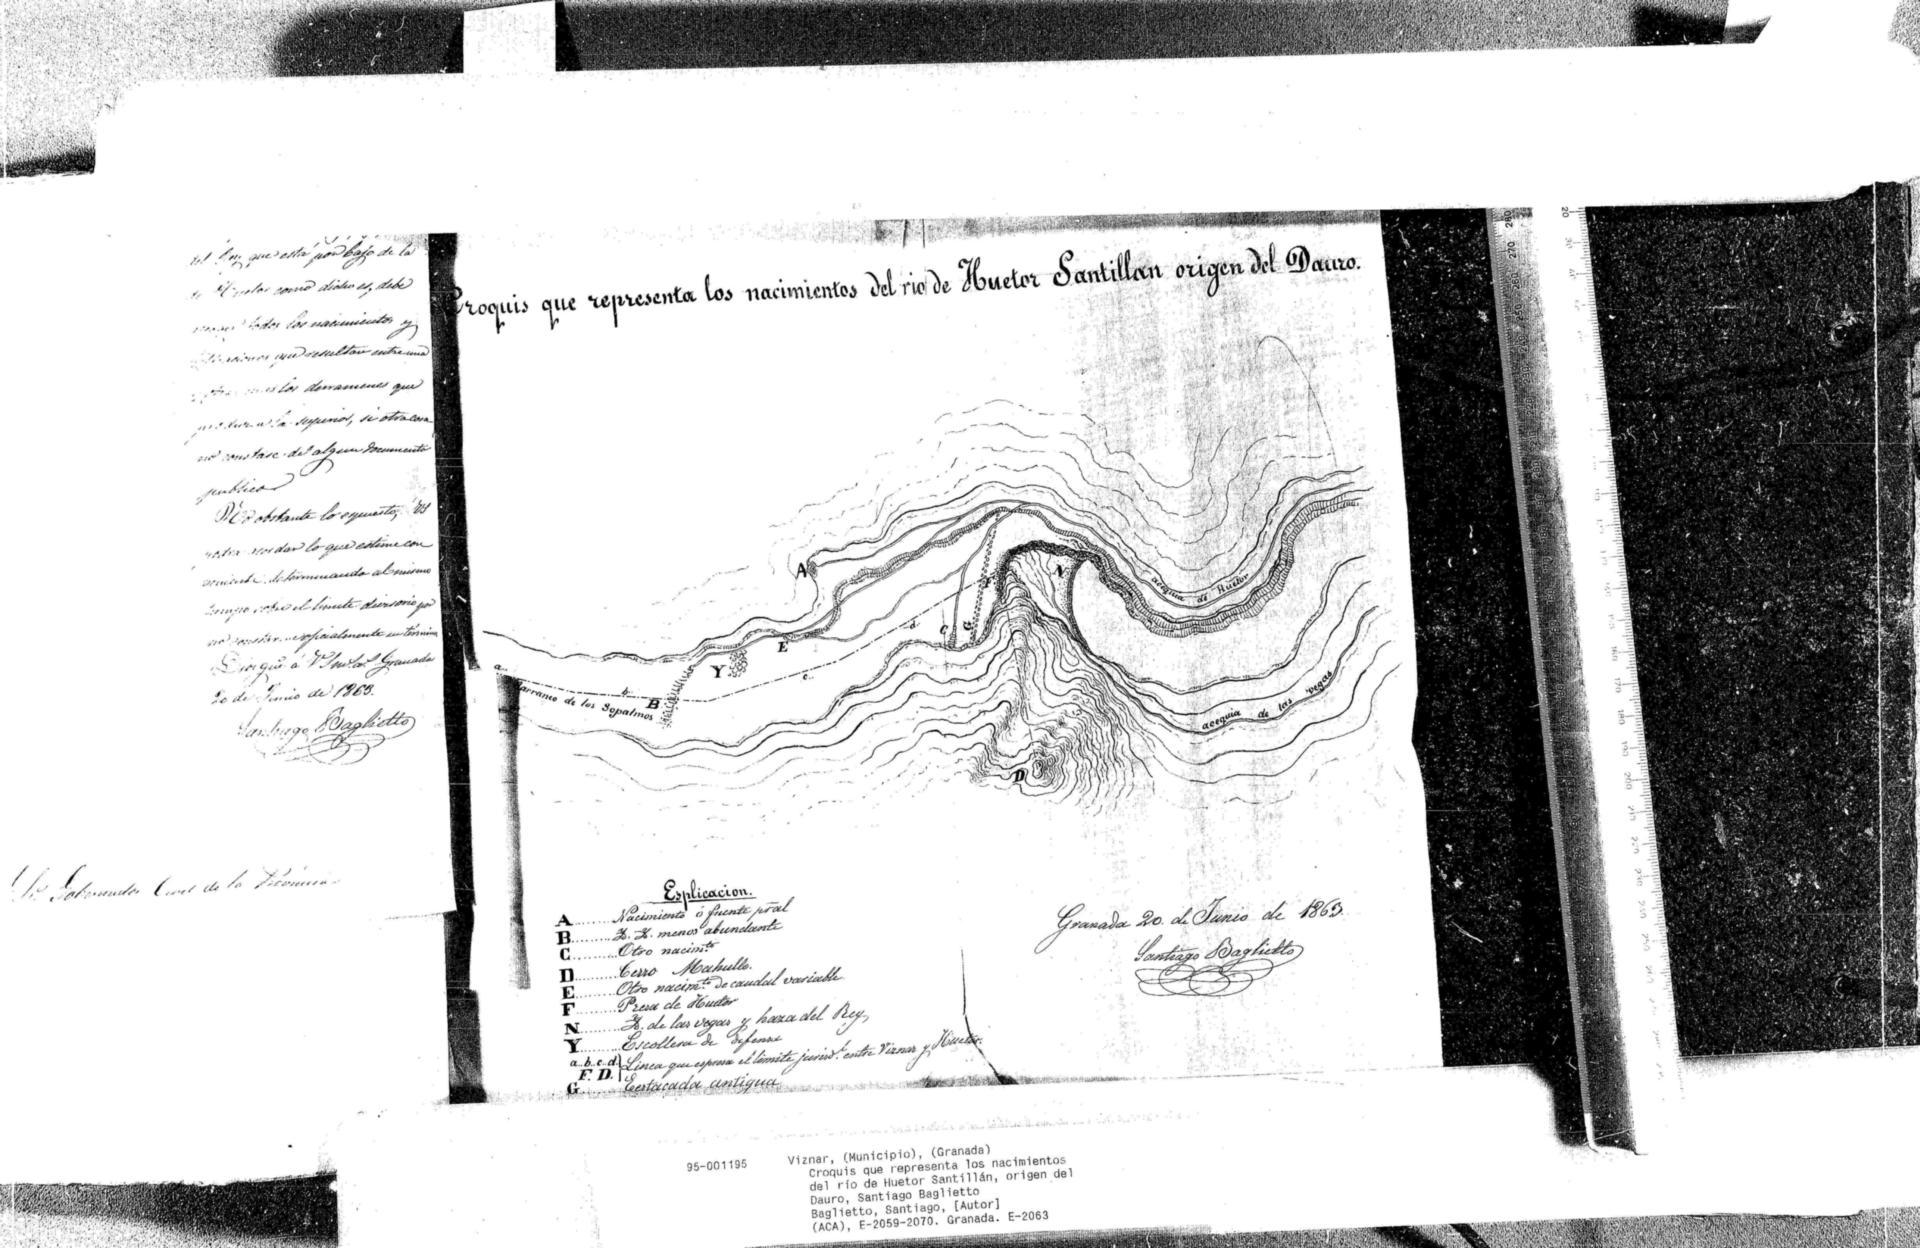 que está por bajo de la
como dicho es, debe
todos los nacimientos y
que resultan entre una
los derramenes que
la superior, si otra cosa
no constase del algun documento
publico
No obstante lo espuesto, VS
lo que estime con
determinando al mismo
sobre el limite divisorio por
no oficialmente su término
Dios gue á V. S. m. a.s Granada
20 de Junio de 1863.
Santiago Baglietto
Sr. Gobernador Civil de la Provincia
Croquis que representa los nacimientos del rio de Huetor Santillan origen del Dauro.
A
acequia de Huetor
N
F
G
C
d
E
Y
c
a
b
B
barranco de los Sopalmos
acequia de las vegas
D
Esplicacion.
A Nacimiento ó fuente pral
B Y. Y. menos abundante
C Otro nacimto
D Cerro Mahullo.
E Otro nacimto de caudal variable
F Presa de Huetor
N Y. de las vegas y haza del Rey,
Y Escollera de defensa
a..b..c..d. F. D. Linea que espresa el limite jurisdl entre Viznar y Huetor.
G Estacada antigua
Granada 20 de Junio de 1863.
Santiago Baglietto
95-001195 Viznar, (Municipio), (Granada)
Croquis que representa los nacimientos
del río de Huetor Santillán, origen del
Dauro, Santiago Baglietto
Baglietto, Santiago, [Autor]
(ACA), E-2059-2070. Granada. E-2063